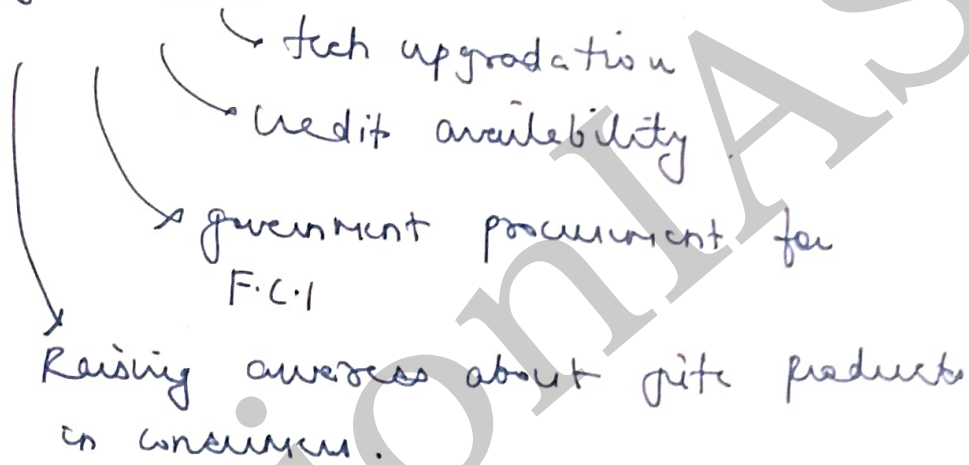 tech upgradation
credit availability.
government procurement for
F.C.I
Raising awareness about jute products
in consumers.